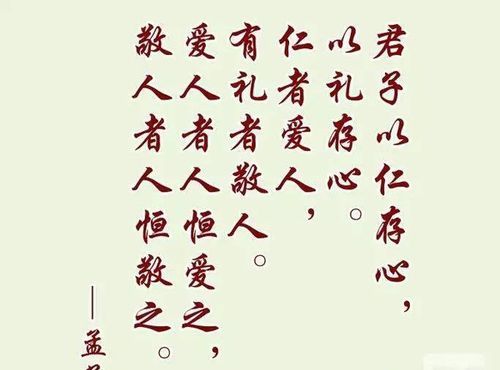 君子以仁存心，
以礼存心。
仁者爱人，
有礼者敬人。
爱人者人恒爱之，
敬人者人恒敬之。
——孟